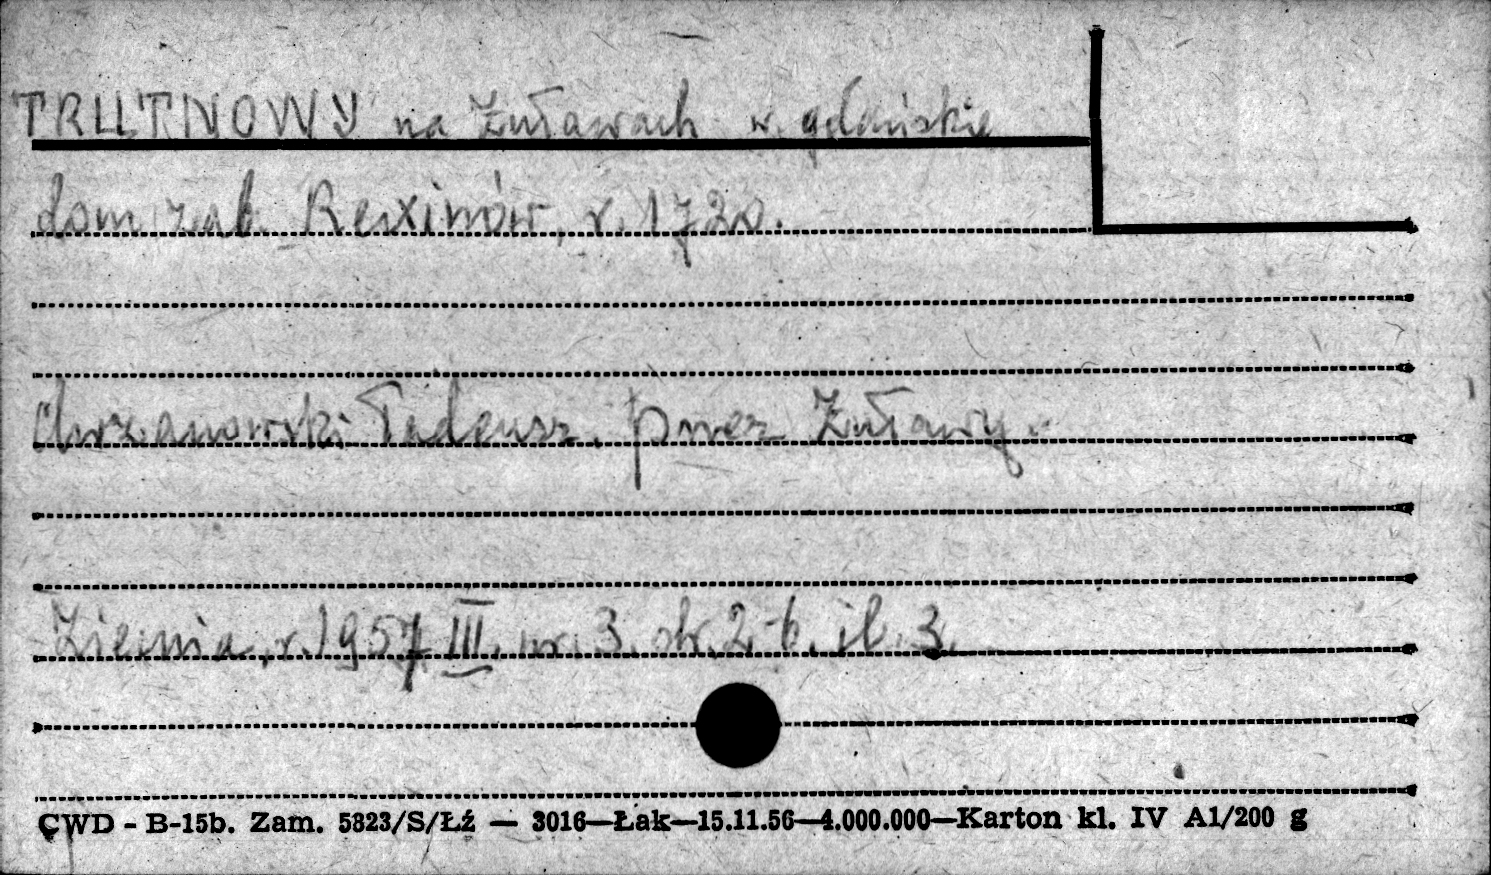 TRUTNOWY na Żuławach w. gdańskie
dom zab. Rexinów, r. 1720.
Chrzanowski Tadeusz. Przez Żuławy.
Ziemia, r. 1957 III. nr. 3. str. 2-6. il. 3.
CWD - B-15b. Zam. 5823/S/Łź — 3016—Łak—15.11.56—4.000.000—Karton kl. IV A1/200 g